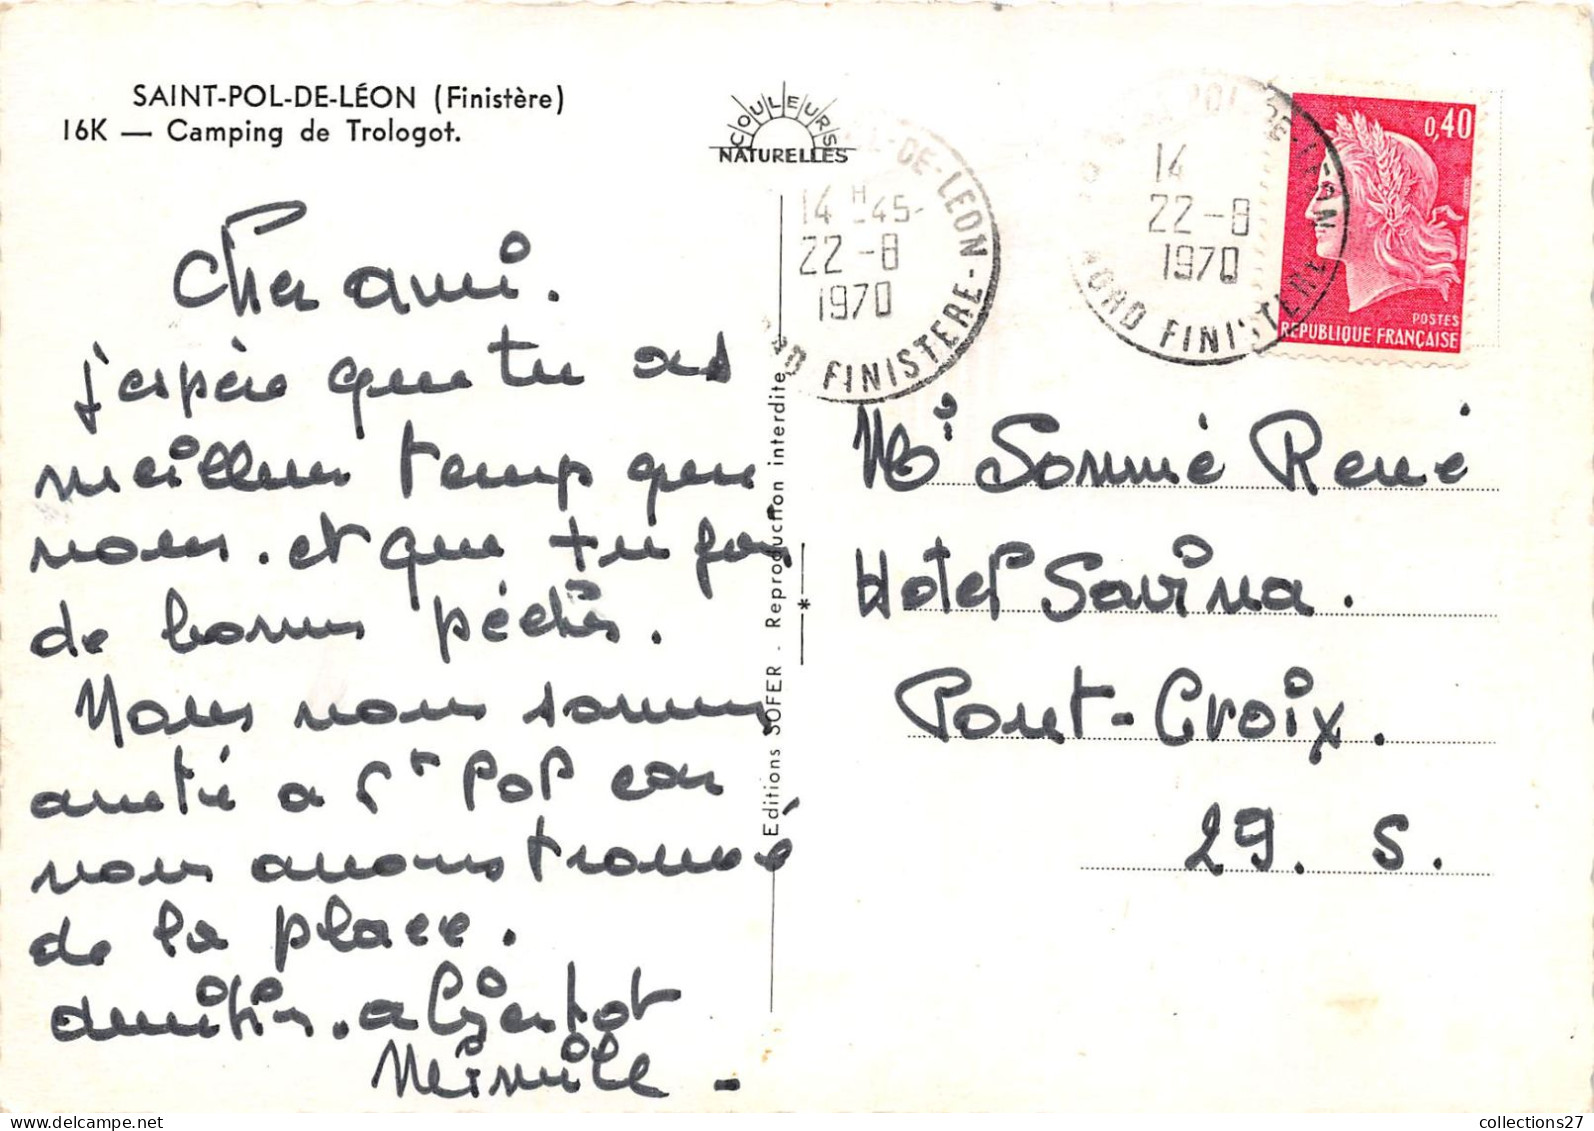 SAINT-POL-DE-LÉON (Finistère)
16K — Camping de Trologot.
COULEURS
NATURELLES
Cher ami.
j'espère que tu as
meilleur temp que
nous. et que tu fais
de bonnes pêches.
Nous nous sommes
arreté a St Pol car
nous avons trouvé
de la place.
amitiés. a bientot
Editions SOFER - Reproduction interdite
*
POL-DE-LEON -
14 H 45-
22-8
1970
NORD FINISTERE -
14
22-8
1970
NORD FINISTERE
0,40
POSTES
REPUBLIQUE FRANÇAISE
Mr René
Hotel Savina.
Pont-Croix.
29. S.
collections27